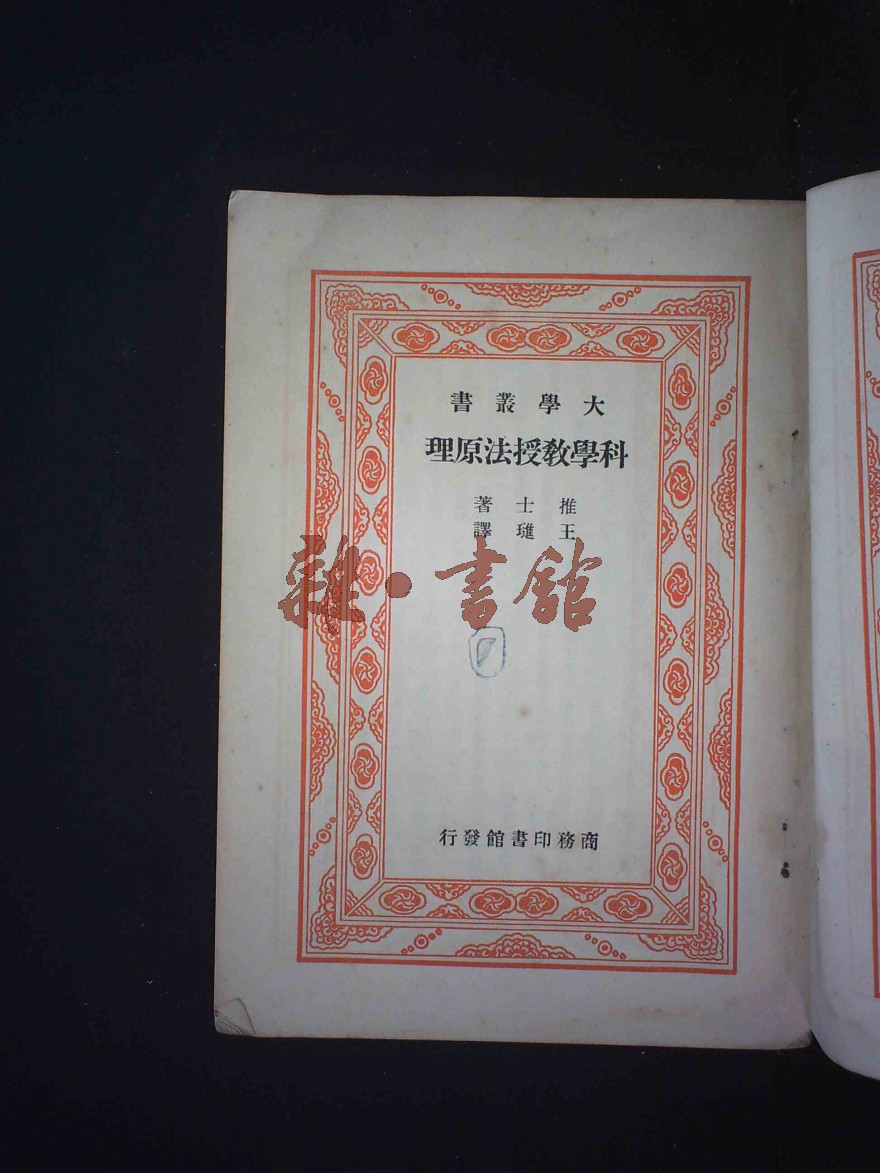 大學叢書
科學教授法原理
推士著
王璡譯
雜·書館
商務印書館發行